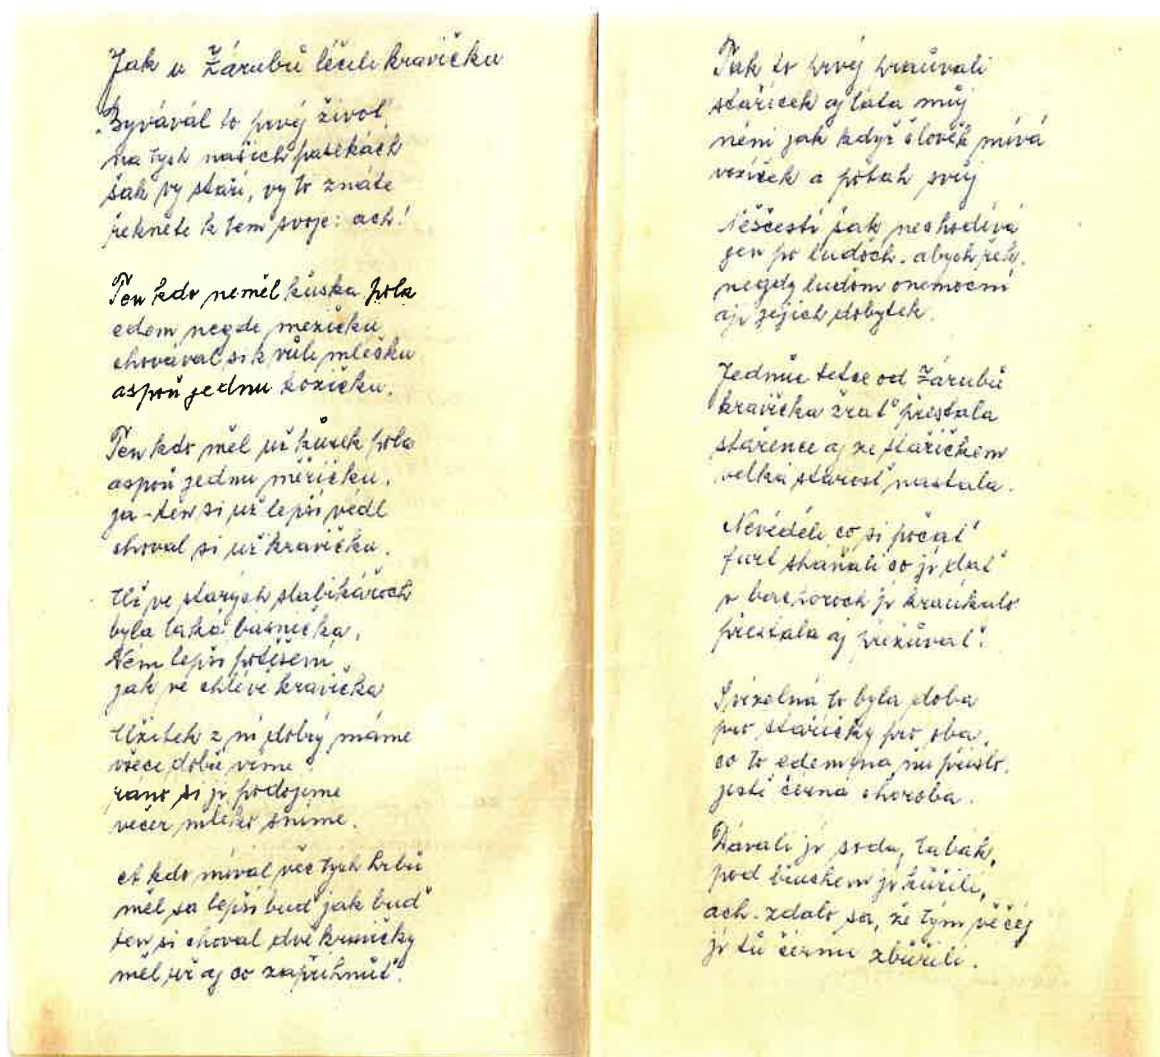 Jak u Zárubů léčili kravičku
„Byvávál to prvéj život,
na tych našich pasekách
šak vy staří, vy to znáte
řekněte k tem svoje: ach!
Ten kdo neměl kúska pola
edem negde mezičku
chovával si k vůli mléšku
aspoň jednu kozičku.
Ten kdo měl už kúsek pola
aspoň jednu měřičku,
ja-ten si už lepší védl
choval si už kravičku.
Už ve starých slabikároch
byla taká basnička,
Néni lepší potěšení
jak ve chlévě kravička
Užitek z ní dobrý máme
všeci dobú víme
ráno si ju podojíme
večer mléko sníme.
A kdo míval věc tych hrbů
měl sa lepší buď jak buď
ten si choval dvě kravičky
měl už aj co zapřihnúť.
Tak to prvéj pracúvali
stařiček aj tata múj
néni jak kdyř člověk mívá
voziček a potah svúj
Néščestí šak nechodívá
jen po ludoch. abych řék.
negdy ludom onemocní
aji jejich dobytek.
Jednúc tetce od Zárubů
kravička žrať přestala
stařence aj ze stařičkem
velká starosť nastala.
Nevěděli co si počať
furt sháňali co jí dať
v bachoroch jí kraúkalo
přestala aj přežúvať.
Svízelná to byla doba
pro stařičky pro oba,
co to edem na ňu přišlo.
jesti černá choroba.
Dávali jí sodu, tabák,
pod břuchem jí kúřili,
ach. zdalo sa, že tým věčéj
jí tú černú zbúřili.